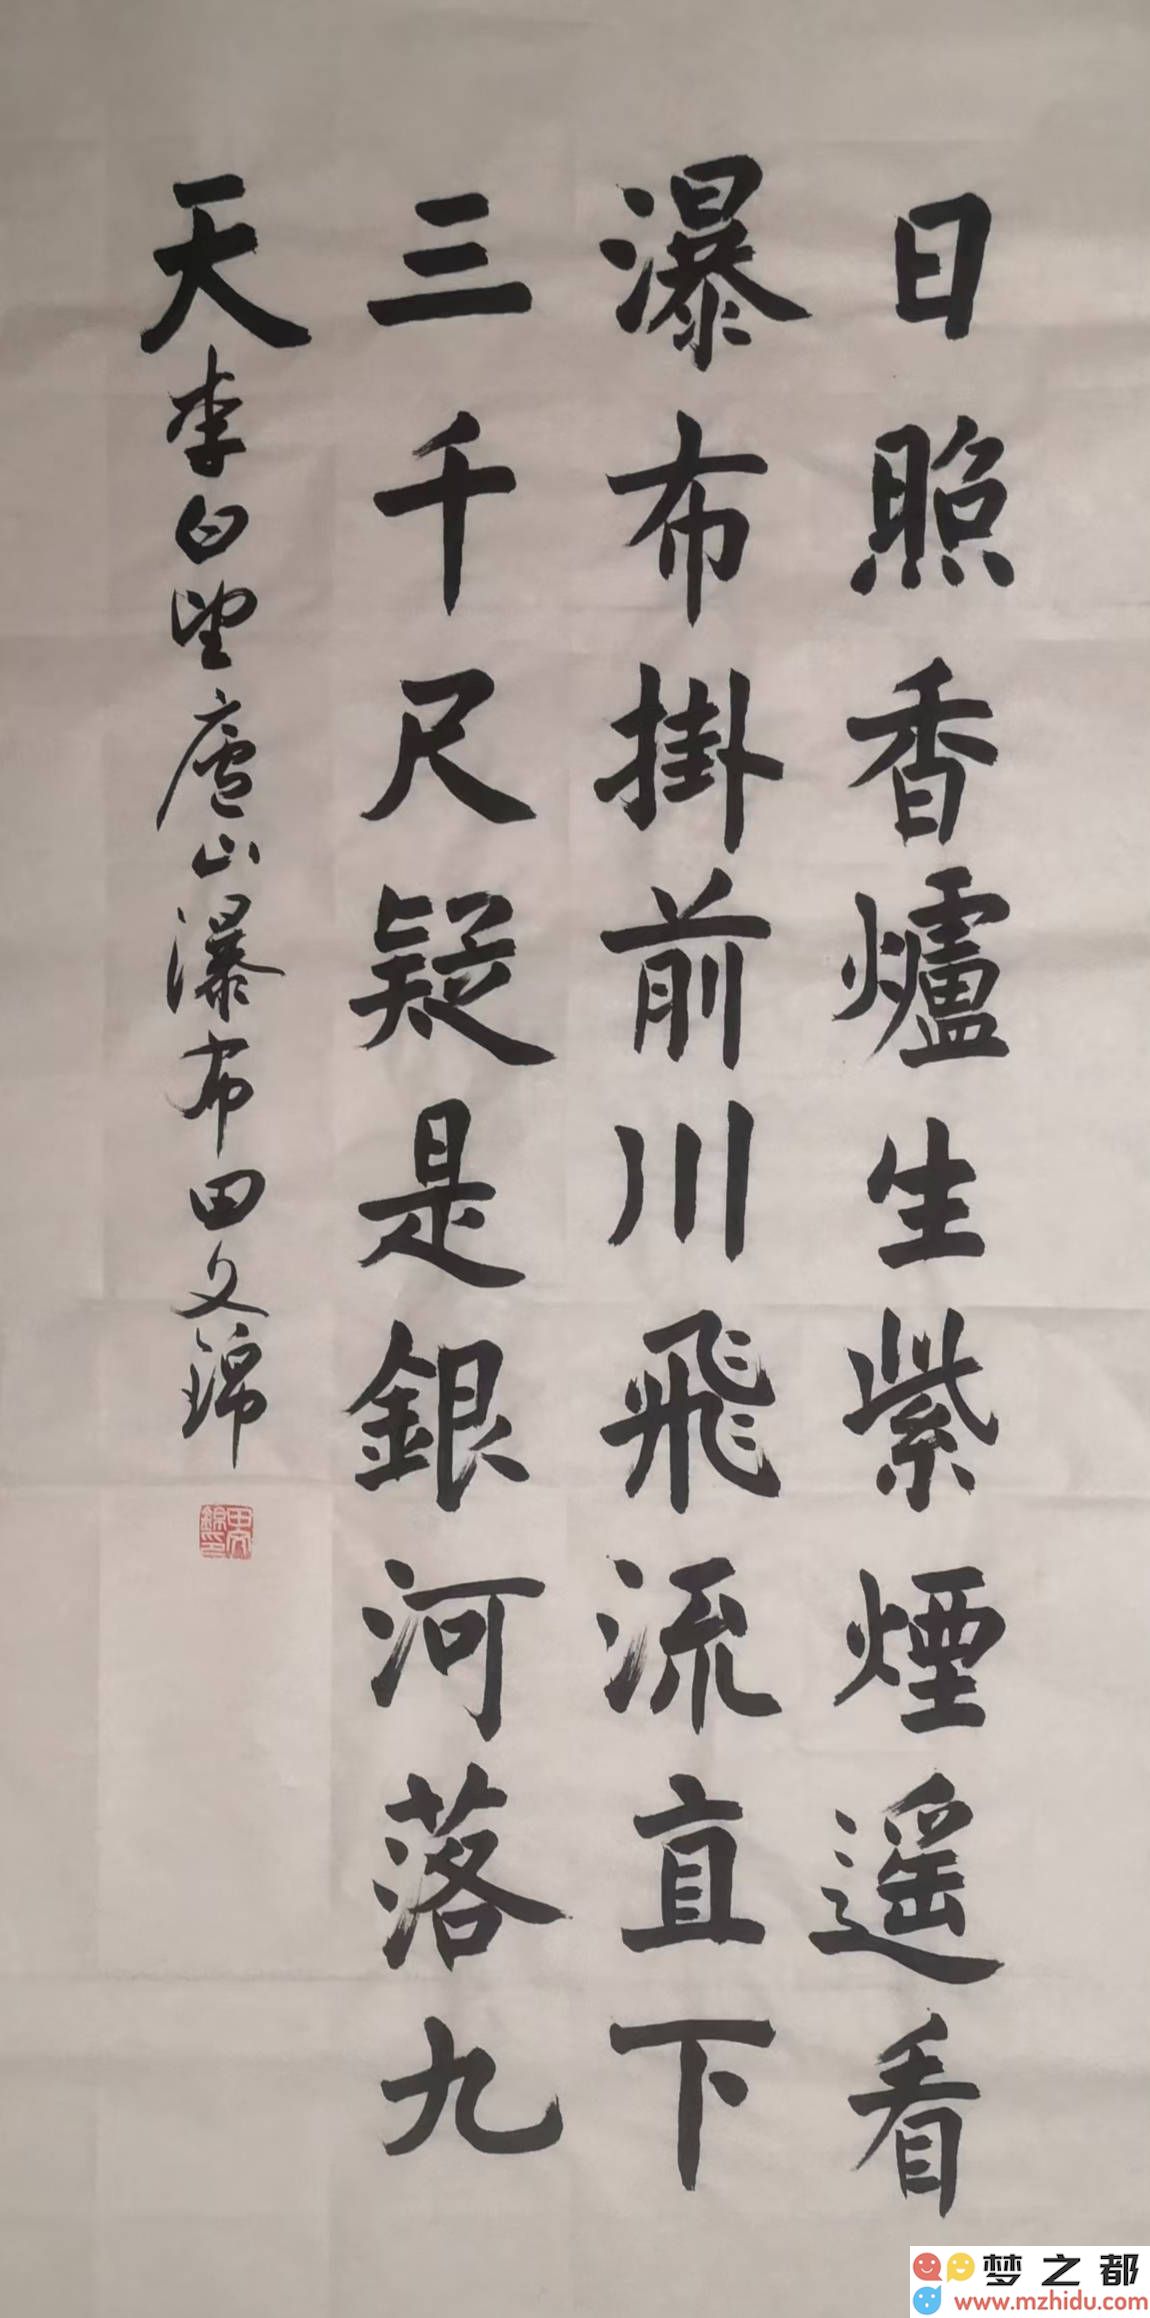 日照香爐生紫煙遥看
瀑布掛前川飛流直下
三千尺疑是銀河落九
天李白望廬山瀑布田文錦
田文錦印
梦之都
www.mzhidu.com